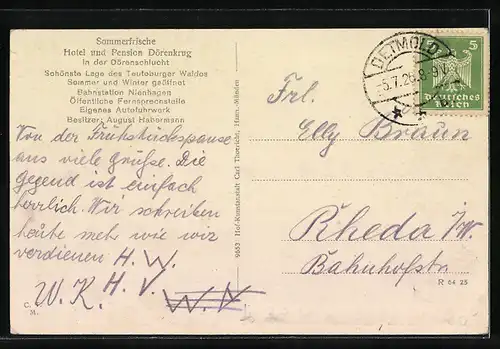 Sommerfrische
Hotel und Pension Dörenkrug
in der Dörenschlucht
Schönste Lage des Teutoburger Waldes
Sommer und Winter geöffnet
Bahnstation Nienhagen
Öffentliche Fernsprechstelle
Eigenes Autofuhrwerk
Besitzer: August Habermann
Von der Frühstückspause
aus viele Grüße. Die
Gegend ist einfach
herrlich. Wir schreiben
heute mehr wie wir
verdienen H. W.
W. K. H. V. W. V.
C.
M.
9653 Hof-Kunstanstalt Carl Thoericht, Hann.-Münden
DETMOLD
5.7.26.8-9V.
5
Deutsches
Reich
Frl.
Elly Braun
Rheda i/W.
Bahnhofstr
R 04 25